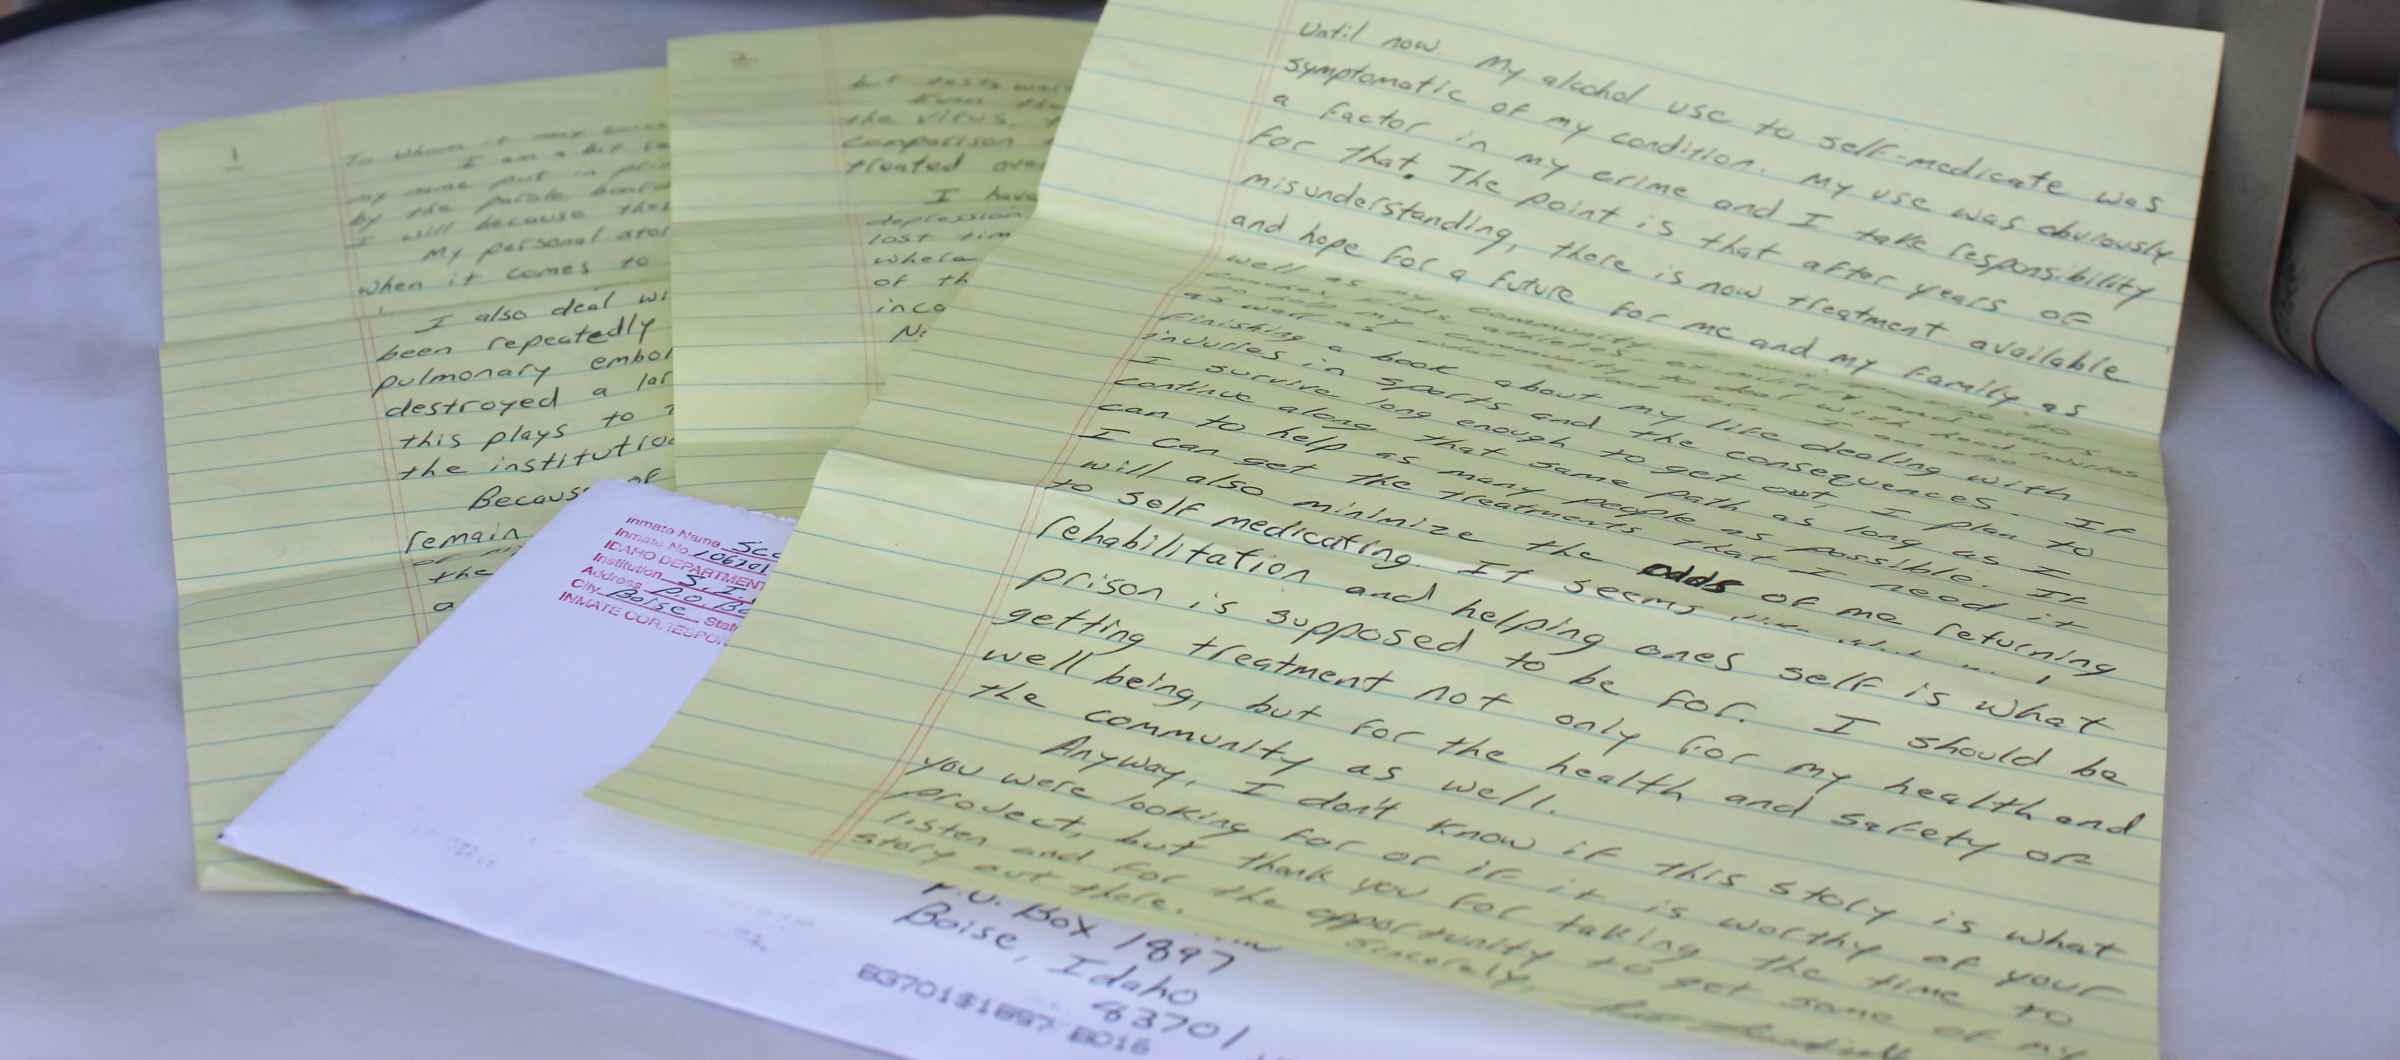 1
To whom it may
I am a bit
my name put in
by the parole board
I will because
My personal
when it comes to
I also deal
been repeatedly
pulmonary
destroyed a
this plays to
the
Because of
remain
the
a
2
but tests
Even
the virus.
comparison
treated
I have
depression
lost
where
of
Until now. My alcohol use to self-medicate was
symptomatic of my condition. My use was obviously
a factor in my crime and I take responsibility
for that. The point is that after years of
misunderstanding, there is now treatment available
and hope for a future for me and my family as
well as my community
to help my community to deal with head injuries
as well as
finishing a book about my life dealing with
injuries in sports and the consequences. If
I survive long enough to get out, I plan to
continue along that same path as long as I
can to help as many people as possible. If
I can get the treatments that I need it
will also minimize the odds of me returning
to self medicating. It seems
rehabilitation and helping ones self is what
prison is supposed to be for. I should be
getting treatment not only for my health and
well being, but for the health and safety of
the community as well.
Anyway, I don't know if this story is what
you were looking for or if it is worthy of your
project, but thank you for taking the time to
listen and for the opportunity to get some of my
story out there.
Sincerely,
Inmate Name
Inmate No. 106701
IDAHO DEPARTMENT
Institution S.I.
Address P.O.
City Boise State
INMATE
P.O. Box 1897
Boise, Idaho
83701